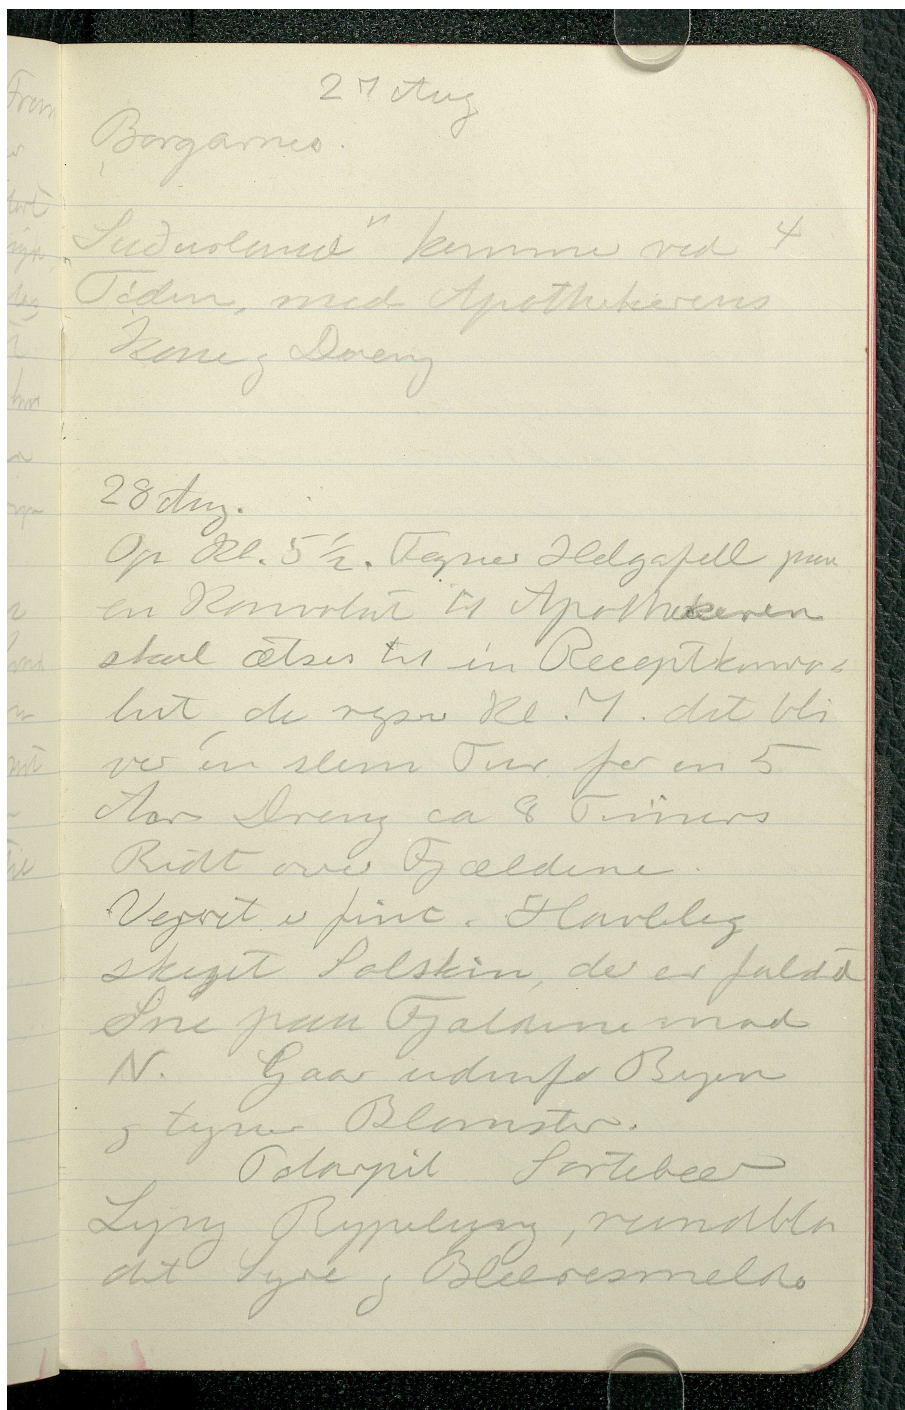 27 Aug
Borgarnes.
"Suðurland" kommer ved 4
Tiden, med Apothekerens
Kone og Dreng
28 Aug.
Op Kl. 5½. Tegner Helgafell paa
en Konvolut til Apothekeren
skal ætses til en Receptkonvo-
lut, de rejser Kl. 7. det bli
ver en slem Tur for en 5
Aars Dreng ca 8 Timers
Ridt over Fjældene.
Vejret er fint. Havblig
skyet Solskin, der er faldt
Sne paa Fjældene mod
N. Gaar udenfor Byen
og tegner Blomster.
Polarpil Sortebær
Lyng Rypelyng, rundbla
det Syre og Blæresmelde